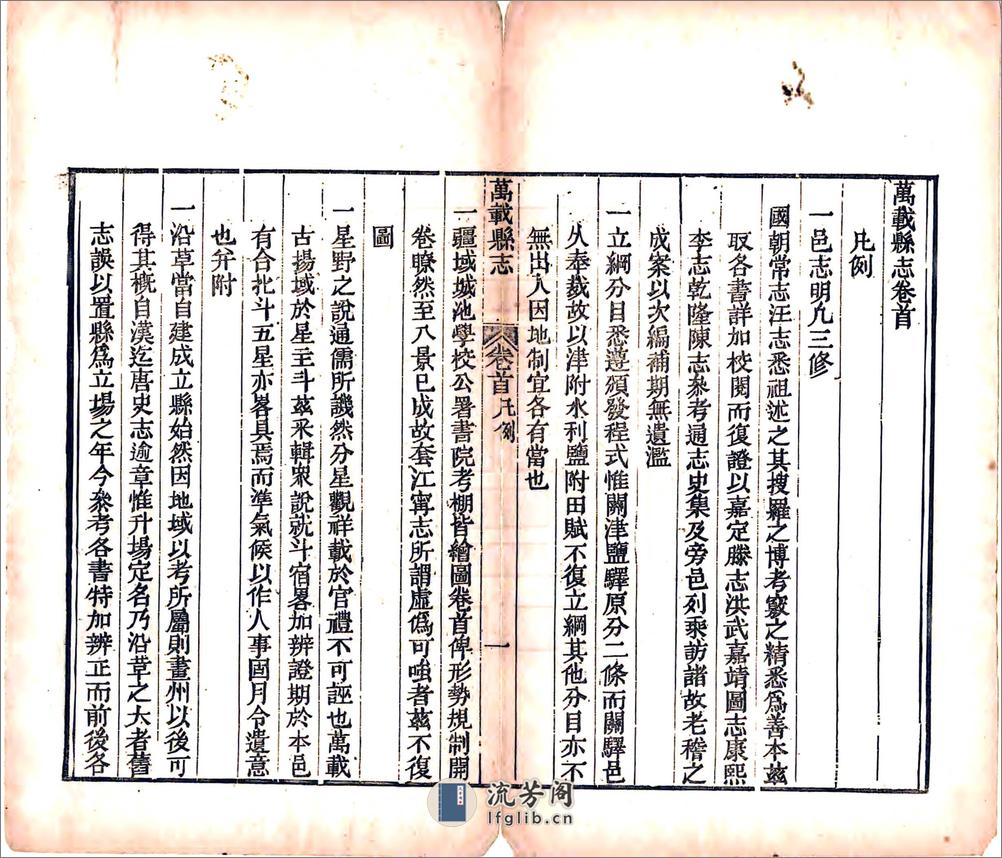 萬載縣志卷首
凡例
一邑志明凡三修
國朝常志汪志悉祖述之其搜羅之博考竅之精悉爲善本茲
取各書詳加校閱而復證以嘉定滕志洪武嘉靖圖志康熙
李志乾隆陳志參考通志史集及旁邑列乘訪諸故老稽之
成案以次編補期無遺濫
一立綱分目悉遵頒發程式惟關津鹽驛原分二條而關驛邑
久奉裁故以津附水利鹽附田賦不復立綱其他分目亦不
無出入因地制宜各有當也
萬載縣志 卷首 凡例 一
一疆域城池學校公署書院考棚皆繪圖卷首俾形勢規制開
卷瞭然至八景已成故套江寧志所謂虛僞可嗤者茲不復
圖
一星野之說通儒所譏然分星觀祥載於官禮不可誣也萬載
古揚域於星主斗茲釆輯衆說就斗宿畧加辨證期於本邑
有合批斗五星亦畧具焉而準氣候以作人事固月令遺意
也弁附
一沿革當自建成立縣始然因地域以考所屬則畫州以後可
得其概自漢迄唐史志逾章惟升場定名乃沿革之大者舊
志誤以置縣爲立場之年今叅考各書特加辨正而前後各
流芳阁
lfglib.cn